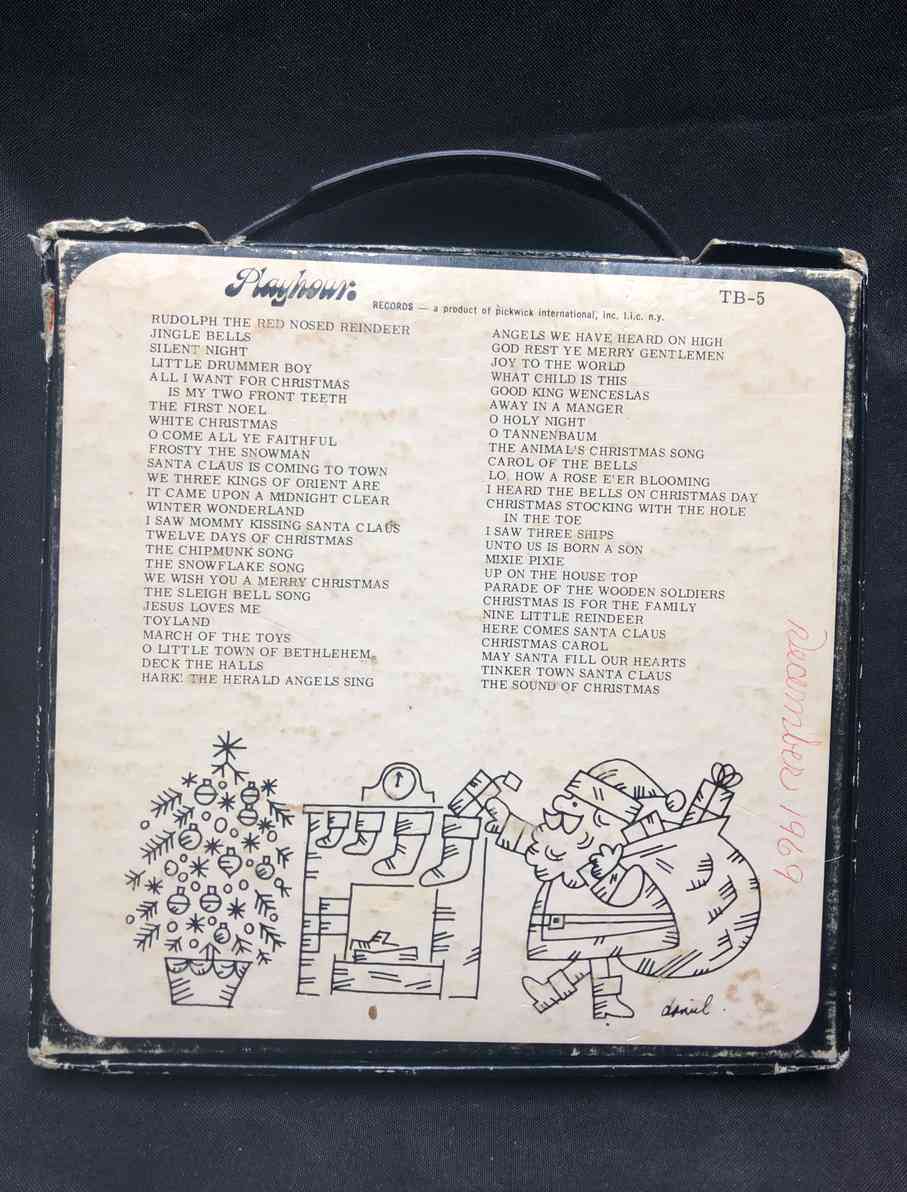 Playhour
TB-5
RECORDS — a product of pickwick international, inc. l.i.c. n.y.
RUDOLPH THE RED NOSED REINDEER
JINGLE BELLS
SILENT NIGHT
LITTLE DRUMMER BOY
ALL I WANT FOR CHRISTMAS
IS MY TWO FRONT TEETH
THE FIRST NOEL
WHITE CHRISTMAS
O COME ALL YE FAITHFUL
FROSTY THE SNOWMAN
SANTA CLAUS IS COMING TO TOWN
WE THREE KINGS OF ORIENT ARE
IT CAME UPON A MIDNIGHT CLEAR
WINTER WONDERLAND
I SAW MOMMY KISSING SANTA CLAUS
TWELVE DAYS OF CHRISTMAS
THE CHIPMUNK SONG
THE SNOWFLAKE SONG
WE WISH YOU A MERRY CHRISTMAS
THE SLEIGH BELL SONG
JESUS LOVES ME
TOYLAND
MARCH OF THE TOYS
O LITTLE TOWN OF BETHLEHEM
DECK THE HALLS
HARK! THE HERALD ANGELS SING
ANGELS WE HAVE HEARD ON HIGH
GOD REST YE MERRY GENTLEMEN
JOY TO THE WORLD
WHAT CHILD IS THIS
GOOD KING WENCESLAS
AWAY IN A MANGER
O HOLY NIGHT
O TANNENBAUM
THE ANIMAL'S CHRISTMAS SONG
CAROL OF THE BELLS
LO, HOW A ROSE E'ER BLOOMING
I HEARD THE BELLS ON CHRISTMAS DAY
CHRISTMAS STOCKING WITH THE HOLE
IN THE TOE
I SAW THREE SHIPS
UNTO US IS BORN A SON
MIXIE PIXIE
UP ON THE HOUSE TOP
PARADE OF THE WOODEN SOLDIERS
CHRISTMAS IS FOR THE FAMILY
NINE LITTLE REINDEER
HERE COMES SANTA CLAUS
CHRISTMAS CAROL
MAY SANTA FILL OUR HEARTS
TINKER TOWN SANTA CLAUS
THE SOUND OF CHRISTMAS
December 1969
daniel